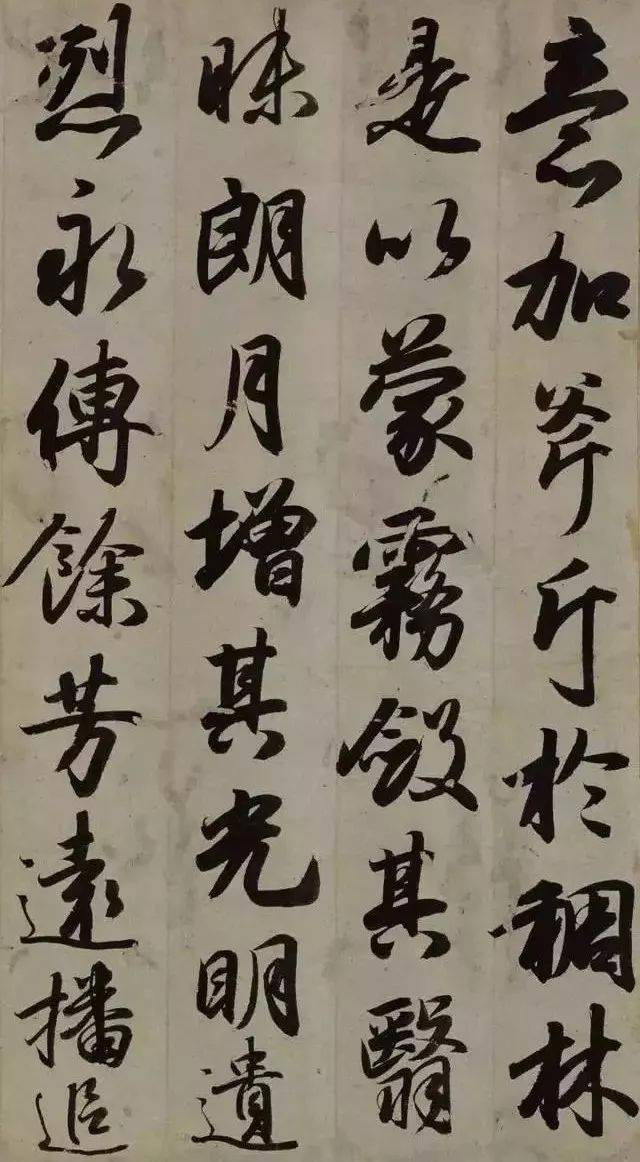 意加斧斤於稠林
是以蒙霧斂其翳
昧朗月增其光明遺
烈永傳餘芳遠播追